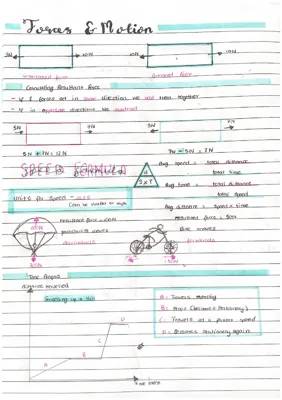 Forces & Motion
5N
10N
10N
10N
Calculating Resultant force
- if 2 forces act in same direction we add them together
- if in opposite directions we subtract
5N
7N
5N + 7N = 12N
7N - 5N = 2N
SPEED FORMULA
D
S x T
Avg speed = total distance
total time
Avg time = total distance
speed
Avg distance = speed x time
Units for Speed = m/s
Resultant force = 0N
Resultant force = 50N
parachute moves
Bike moves
downwards
forwards
Time Graphs
distance travelled
Speeding up a hill
A
B
C
D
A: Travels steadily
B: Stops (becomes stationary)
C: Travels at a faster speed
D: Becomes stationary again
Time taken